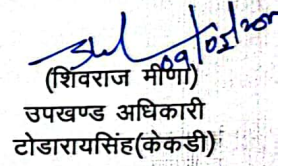 (शिवराज मीणा)
उपखण्ड अधिकारी
टोडारायसिंह(केकडी)